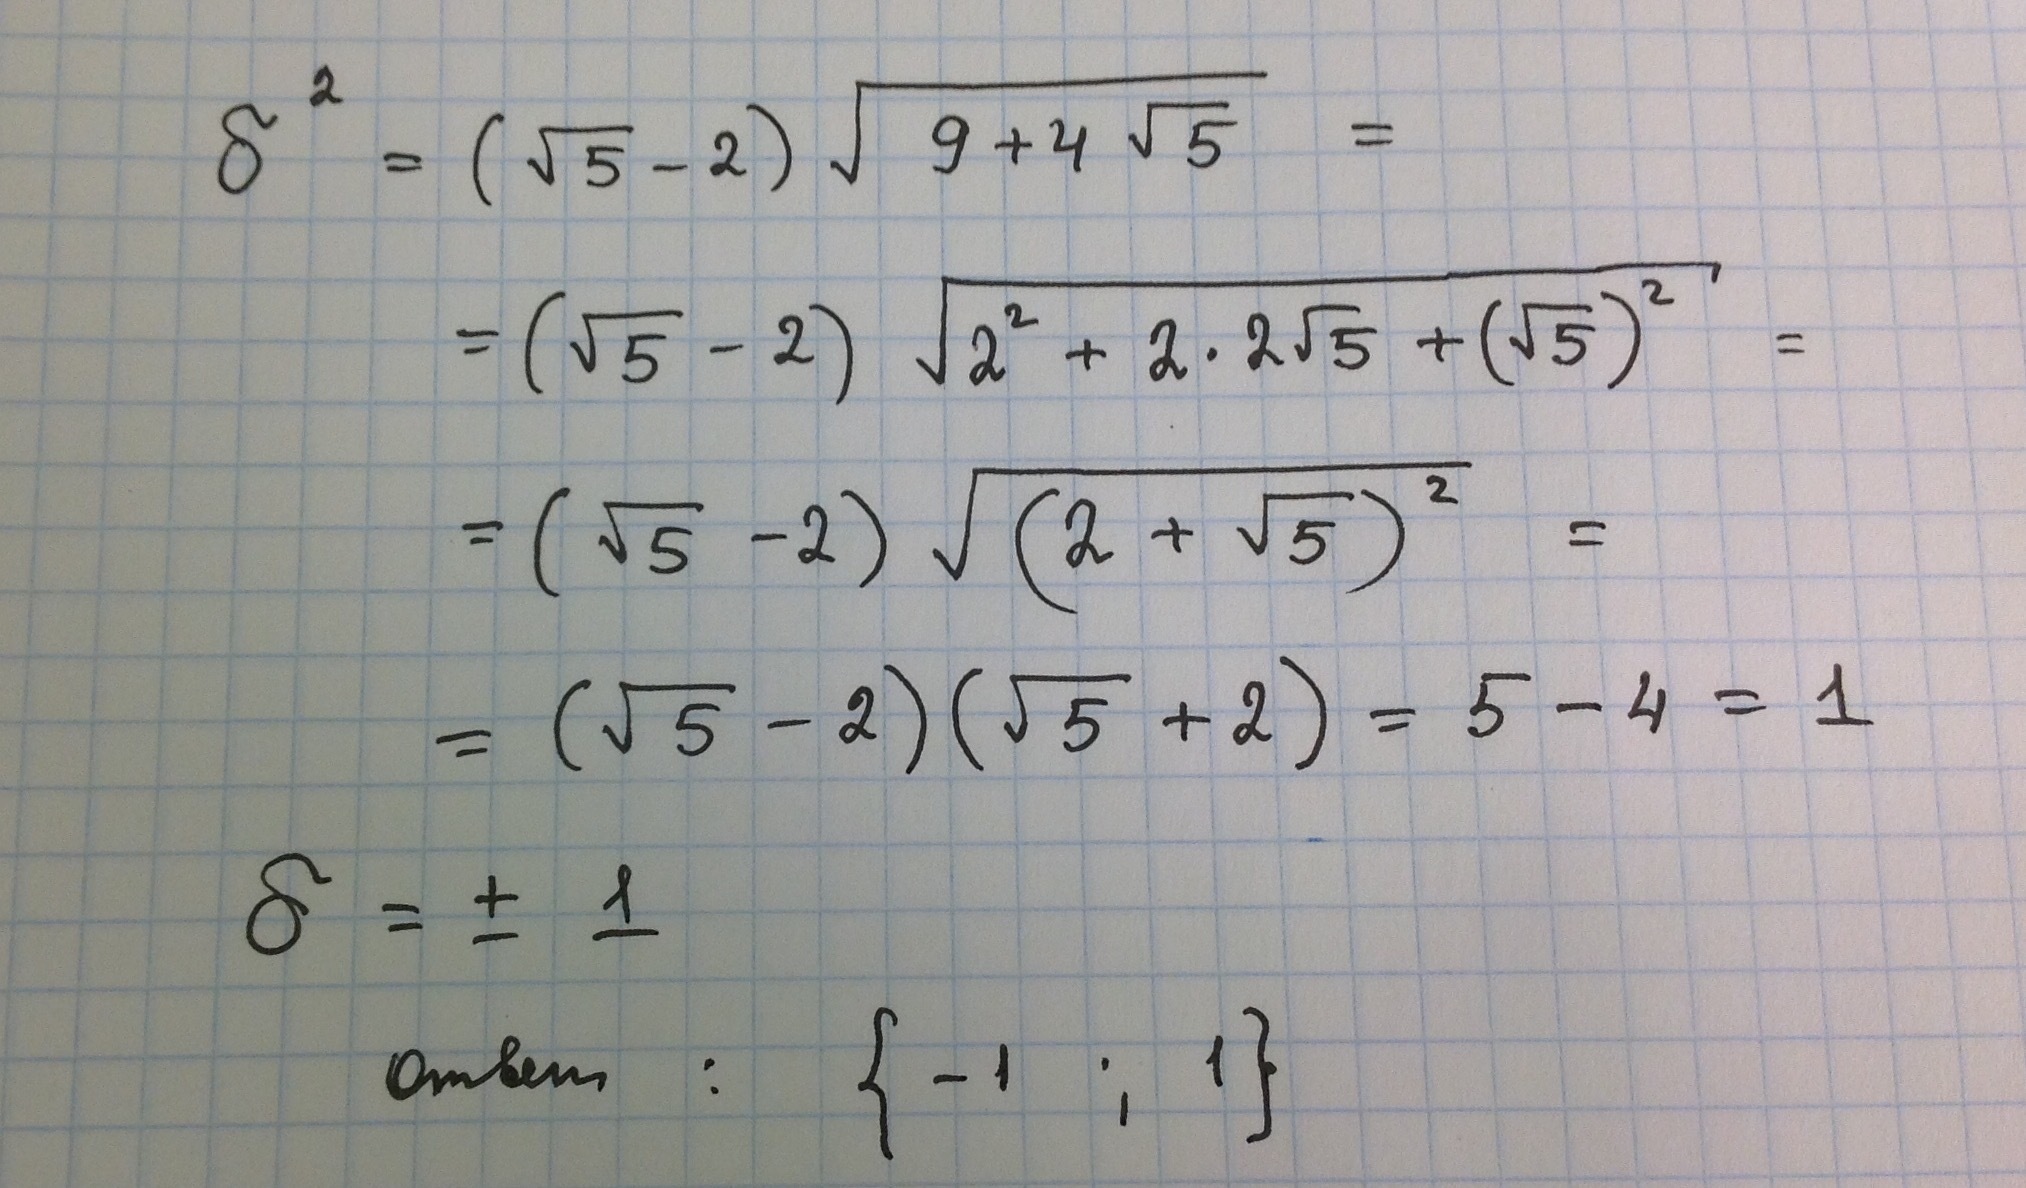 δ² = (√5 - 2) √(9 + 4√5) =
= (√5 - 2) √(2² + 2 · 2√5 + (√5)²) =
= (√5 - 2) √((2 + √5)²) =
= (√5 - 2)(√5 + 2) = 5 - 4 = 1
δ = ± 1
Ответ : {-1 ; 1}